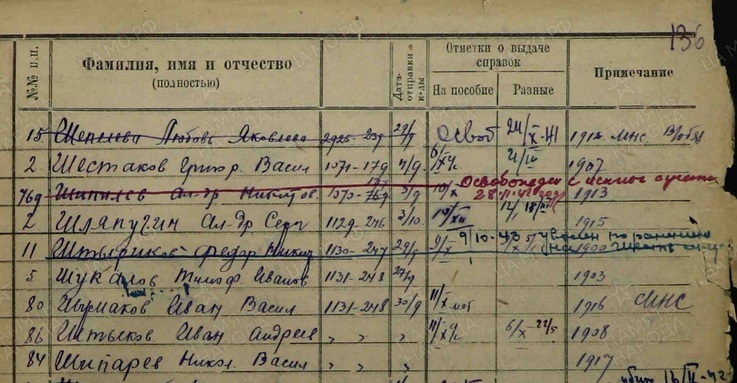 136
№№ п.п. Фамилия, имя и отчество (полностью) Дата отправки к-ды Отметки о выдаче справок Примечание
На пособие Разные
15 Шепелева Любовь Яковлевна 2925-239 освоб 24/X-41 1912 МНС
2 Шестаков Григор. Васил 1071-179 4/9 1907
769 Шипилев Ал-др Никитов. 1570-769 3/9 10/X Освобожден с исключ. с учета 1913
2 Шляпугин Ал-др Серг 1129-246 3/10 10/XII 1915
11 Штыриков Федор Никит 1130-247 29/9 9/X 9/10-43 уволен по ранению 1900
5 Шукалов Тимоф Иванов 1131-248 27/9 1903
80 Шумаков Иван Васил 1131-248 30/9 11/X 1916 МНС
86 Штыков Иван Андреев " " 11/X 6/X 22/5 1908
84 Шипарев Никол. Васил " " 1917
убит 16/II-42